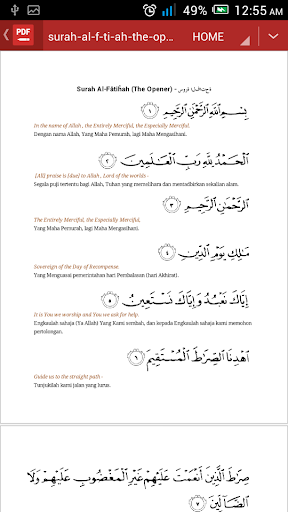 12:55 AM
PDF
surah-al-f-ti-ah-the-op...
HOME
Surah Al-Fātiĥah (The Opener) - سورة الفاتحة
بِسْمِ اللَّهِ الرَّحْمَٰنِ الرَّحِيمِ ﴿١﴾
In the name of Allah , the Entirely Merciful, the Especially Merciful.
Dengan nama Allah, Yang Maha Pemurah, lagi Maha Mengasihani.
الْحَمْدُ لِلَّهِ رَبِّ الْعَالَمِينَ ﴿٢﴾
[All] praise is [due] to Allah , Lord of the worlds -
Segala puji tertentu bagi Allah, Tuhan yang memelihara dan mentadbirkan sekalian alam.
الرَّحْمَٰنِ الرَّحِيمِ ﴿٣﴾
The Entirely Merciful, the Especially Merciful,
Yang Maha Pemurah, lagi Maha Mengasihani.
مَالِكِ يَوْمِ الدِّينِ ﴿٤﴾
Sovereign of the Day of Recompense.
Yang Menguasai pemerintahan hari Pembalasan (hari Akhirat).
إِيَّاكَ نَعْبُدُ وَإِيَّاكَ نَسْتَعِينُ ﴿٥﴾
It is You we worship and You we ask for help.
Engkaulah sahaja (Ya Allah) Yang Kami sembah, dan kepada Engkaulah sahaja kami memohon
pertolongan.
اهْدِنَا الصِّرَاطَ الْمُسْتَقِيمَ ﴿٦﴾
Guide us to the straight path -
Tunjukilah kami jalan yang lurus.
صِرَاطَ الَّذِينَ أَنْعَمْتَ عَلَيْهِمْ غَيْرِ الْمَغْضُوبِ عَلَيْهِمْ وَلَا
الضَّالِّينَ ﴿٧﴾